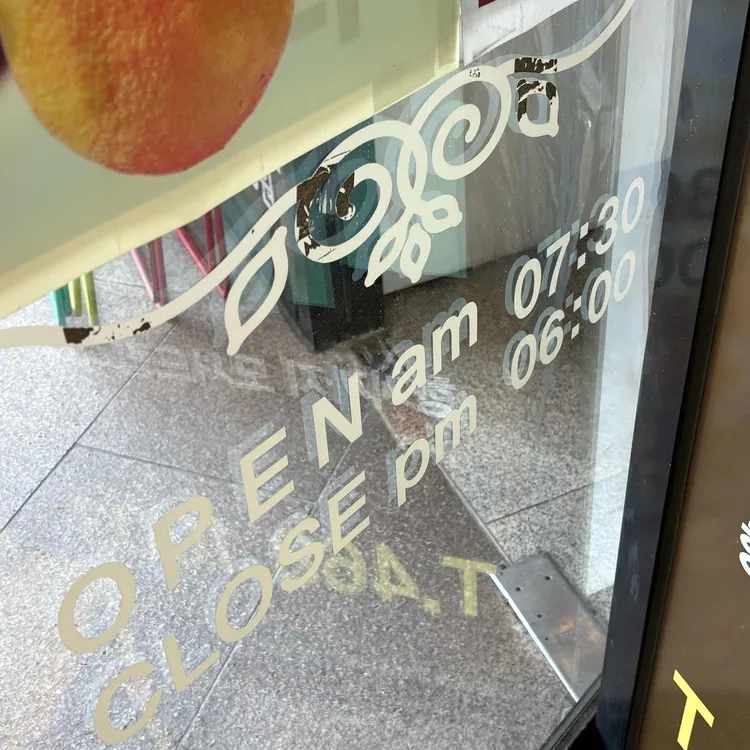 OPEN am 07:30
CLOSE pm 06:00
T.46
T